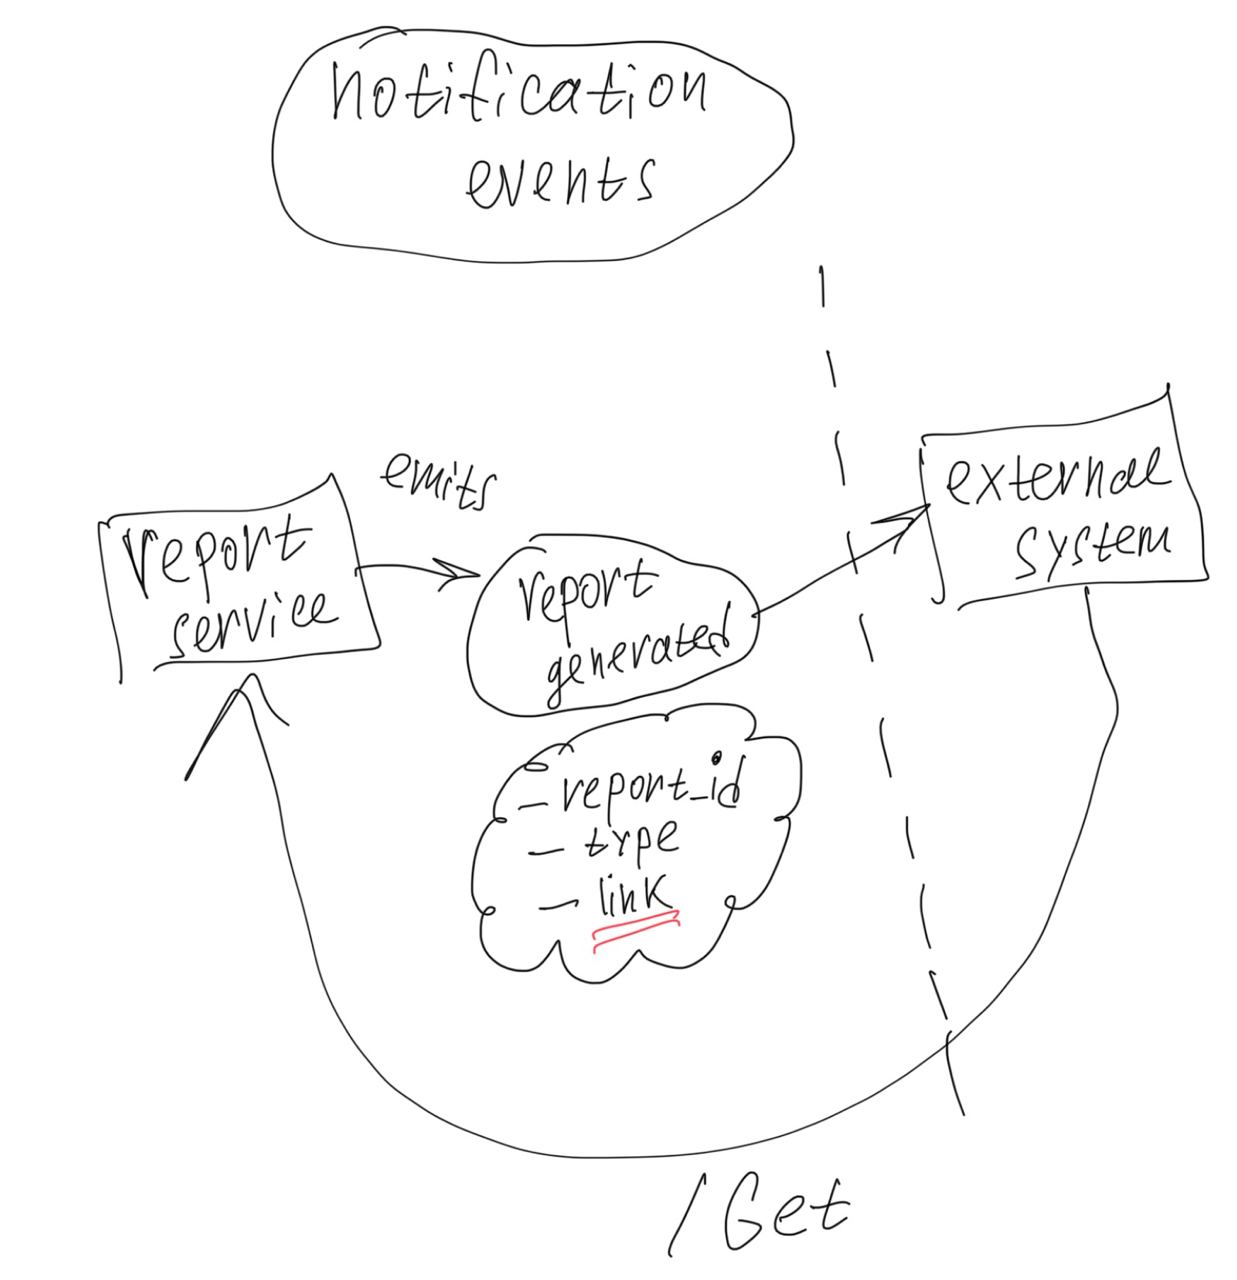 notification
events
emits
report
service
report
generated
external
system
- report_id
- type
- link
/Get